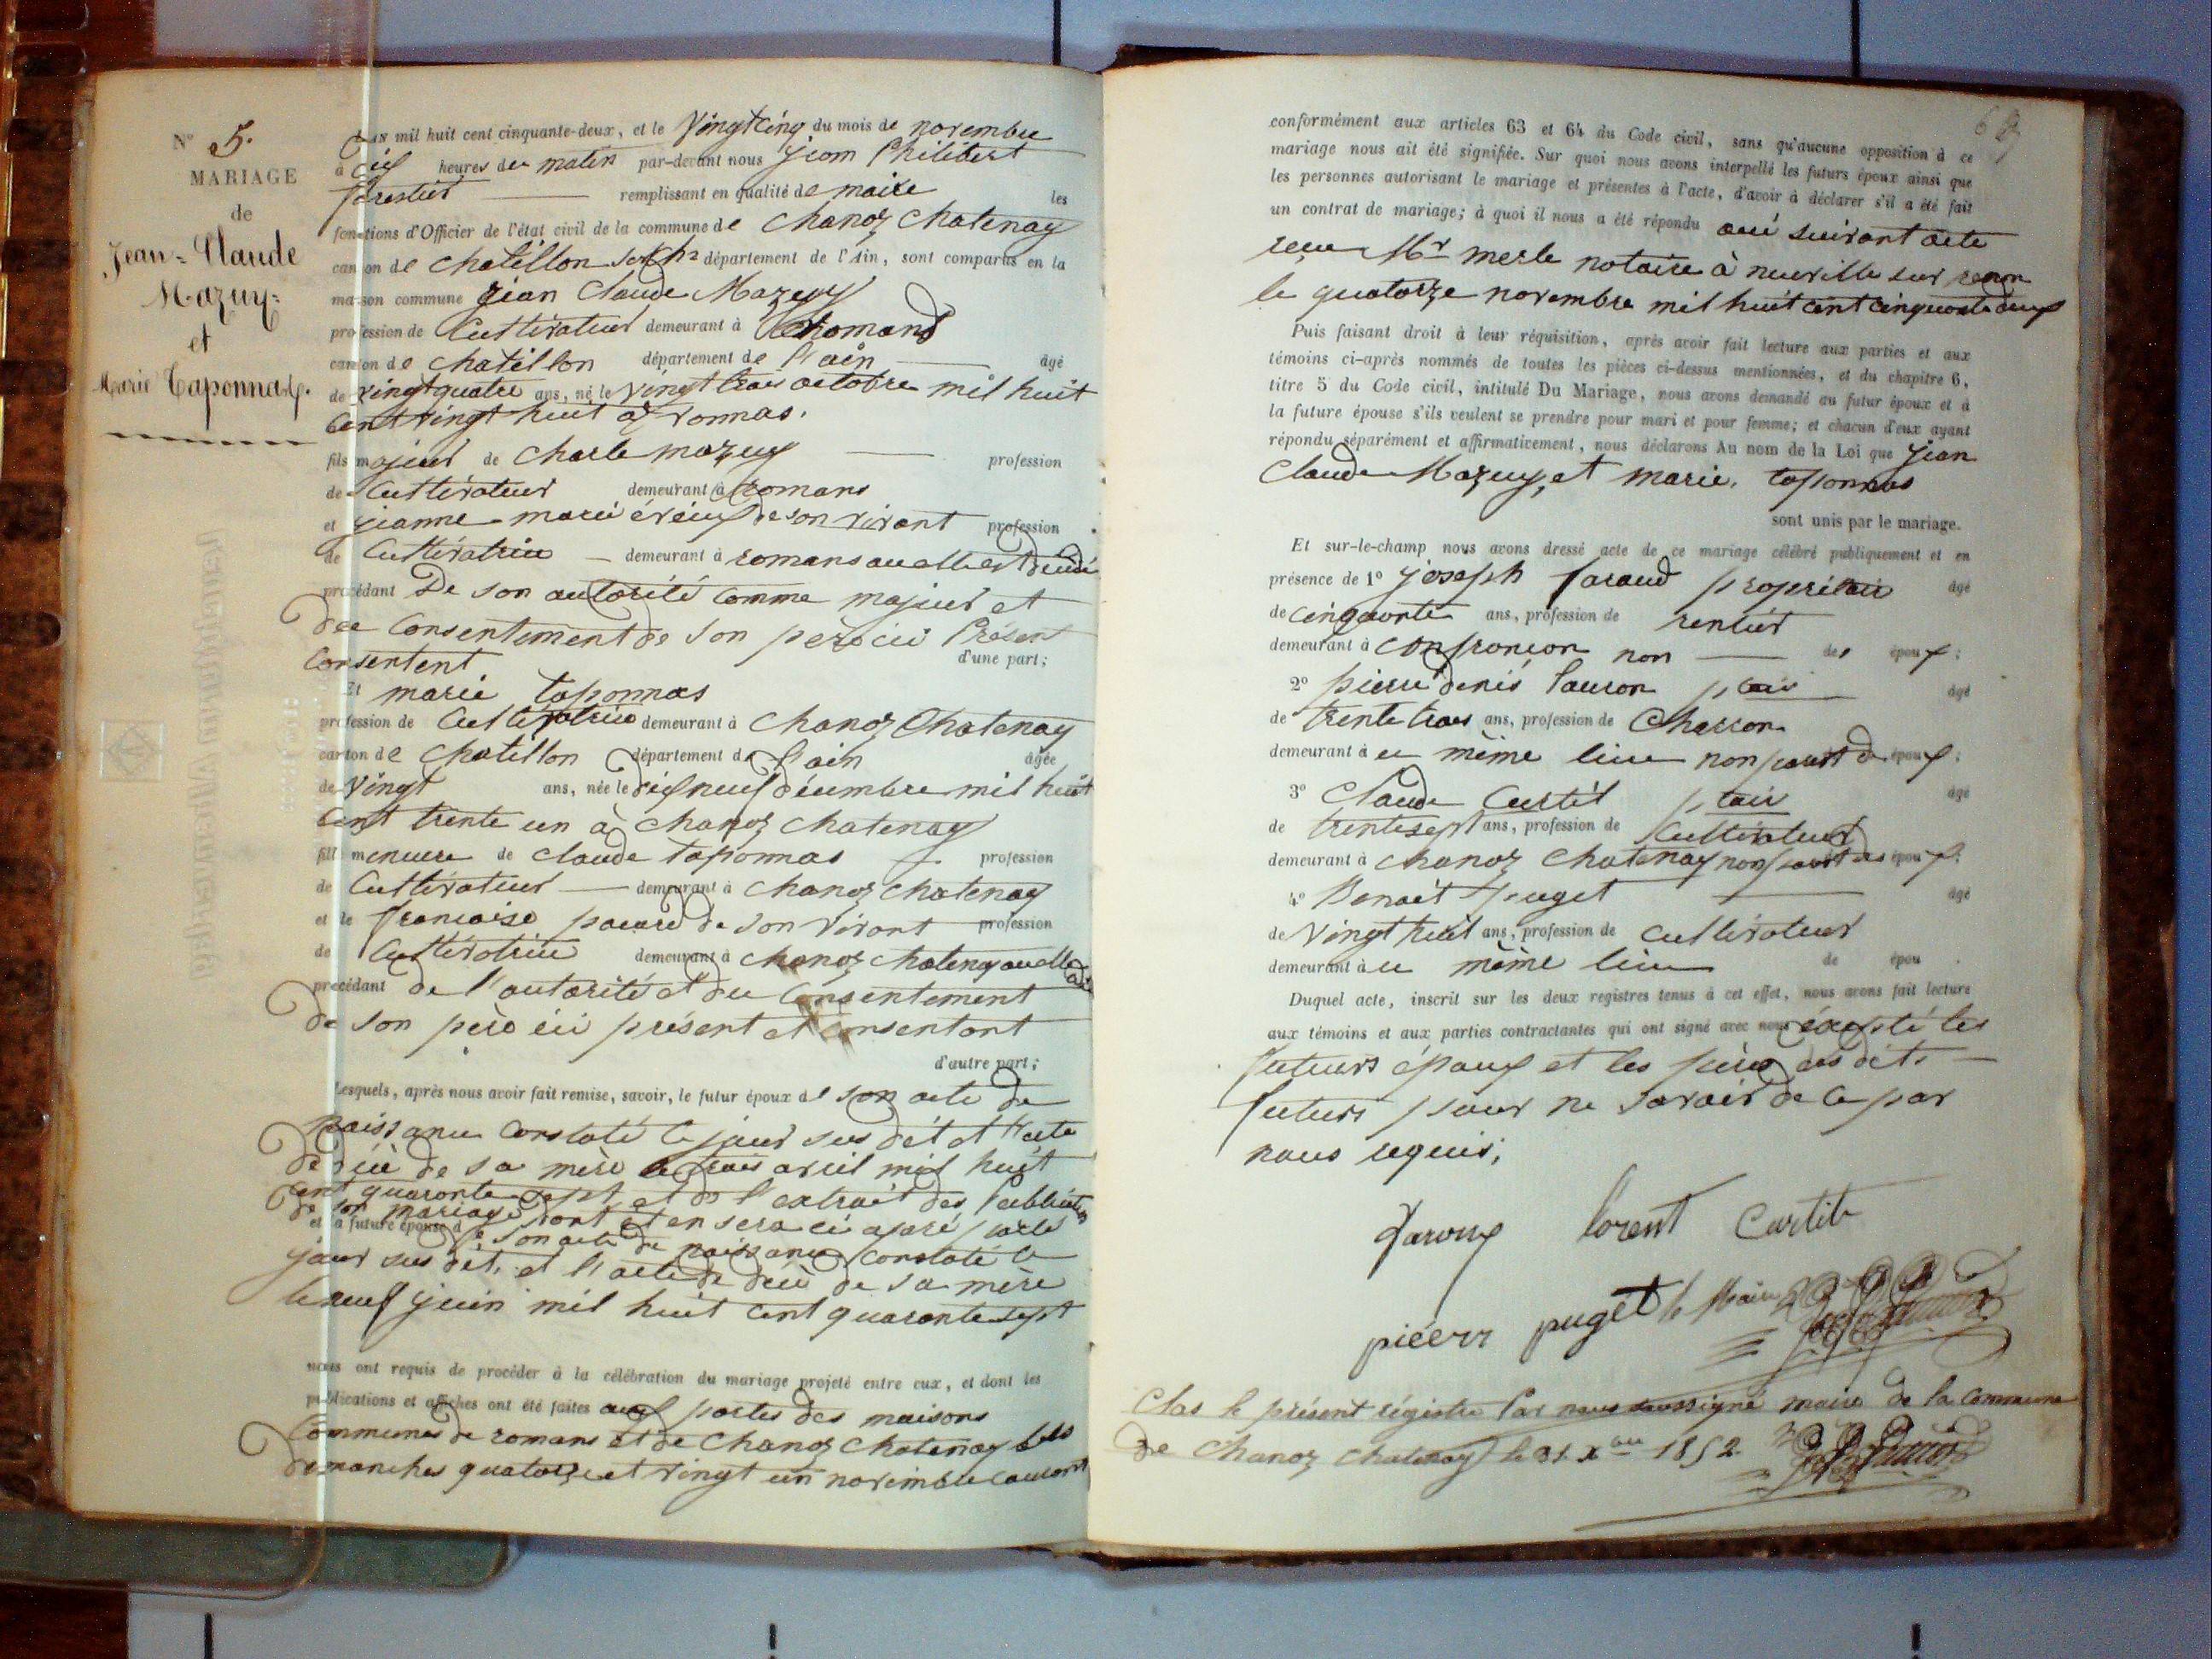 N° 5.
MARIAGE
de
Jean-Claude
Mazuy
et
Marie Taponnas.
L'an mil huit cent cinquante-deux, et le Vingt cinq du mois de novembre
à dix heures du matin par-devant nous Jean Philibert
forestier remplissant en qualité de maire les
fonctions d'Officier de l'état civil de la commune de Chanoz Chatenay
canton de Chatillon département de l'Ain, sont comparus en la
maison commune Jean Claude Mazuy
profession de Cultivateur demeurant à Romans
canton de Chatillon département de l'ain âgé
de vingt quatre ans, né le vingt trois octobre mil huit
Cent vingt huit à vonnas.
fils majeur de Charle mazuy profession
de Cultivateur demeurant à romans
et jeanne marie de son vivant profession
de Cultivatrice demeurant à romans ou elle est décédé
procédant De son autorité comme majeur et
du Consentement de son père ici Présent
Consentent d'une part;
Et marie taponnas
profession de Cultivatrice demeurant à Chanoz Chatenay
canton de Chatillon département de l'ain âgée
de Vingt ans, née le dix neuf décembre mil huit
Cent trente un à Chanoz Chatenay
fille mineure de Claude taponnas profession
de Cultivateur demeurant à Chanoz Chatenay
et de francoise pacard de son vivant profession
de Cultivatrice demeurant à Chanoz Chatenay ou elle
procédant de l'autorité et du Consentement
de son père ici présent et Consentant
d'autre part;
Lesquels, après nous avoir fait remise, savoir, le futur époux de son acte de
naissance Constaté le jour sus dit et l'acte
de décè de sa mère le trois avril mil huit
Cent quaronte sept et de l'extrait des Publications
de son mariage dont il en sera ci apré parlé
et la future épouse de son acte de naissance constaté le
jour sus dit, et l'acte de décè de sa mère
le neuf juin mil huit cent quaronte sept
nous ont requis de procéder à la célébration du mariage projeté entre eux, et dont les
publications et affiches ont été faites aux portes des maisons
Communes de romans et de Chanoz Chatenay les
dimanches quatorze et vingt un novembre courant
conformément aux articles 63 et 64 du Code civil, sans qu'aucune opposition à ce
mariage nous ait été signifiée. Sur quoi nous avons interpellé les futurs époux ainsi que
les personnes autorisant le mariage et présentes à l'acte, d'avoir à déclarer s'il a été fait
un contrat de mariage; à quoi il nous a été répondu oui suivant acte
reçu Mr merle notaire à neuville sur renon
le quatorze novembre mil huit cent cinquante deux
Puis faisant droit à leur réquisition, après avoir fait lecture aux parties et aux
témoins ci-après nommés de toutes les pièces ci-dessus mentionnées, et du chapitre 6,
titre 5 du Code civil, intitulé Du Mariage, nous avons demandé au futur époux et à
la future épouse s'ils veulent se prendre pour mari et pour femme; et chacun d'eux ayant
répondu séparément et affirmativement, nous déclarons Au nom de la Loi que Jean
Claude Mazuy, et marie, taponnas
sont unis par le mariage.
Et sur-le-champ nous avons dressé acte de ce mariage célébré publiquement et en
présence de 1° joseph faraud propriétair âgé
de cinquonte ans, profession de rentier
demeurant à Confrançon non des époux;
2° pierre denis lauron âgé
de trente trois ans, profession de Charron
demeurant à ce même lieu non parent de époux;
3° Claude Curtil âgé
de trente sept ans, profession de Cultivateur
demeurant à chanoz Chatenay non parent des époux;
4° Benoit puget âgé
de Vingt huit ans, profession de cultivateur
demeurant à ce même lieu de épou
Duquel acte, inscrit sur les deux registres tenus à cet effet, nous avons fait lecture
aux témoins et aux parties contractantes qui ont signé avec nous éxcepté les
futurs époux et les pères des dits
futurs pour ne savoir de ce par
nous requis;
lorent Curtil
piéerr puget le Maire
Clos le présent régistre Par nous soussigné maire de la Commune
de Chanoz Chatenay le 31 Xbre 1852